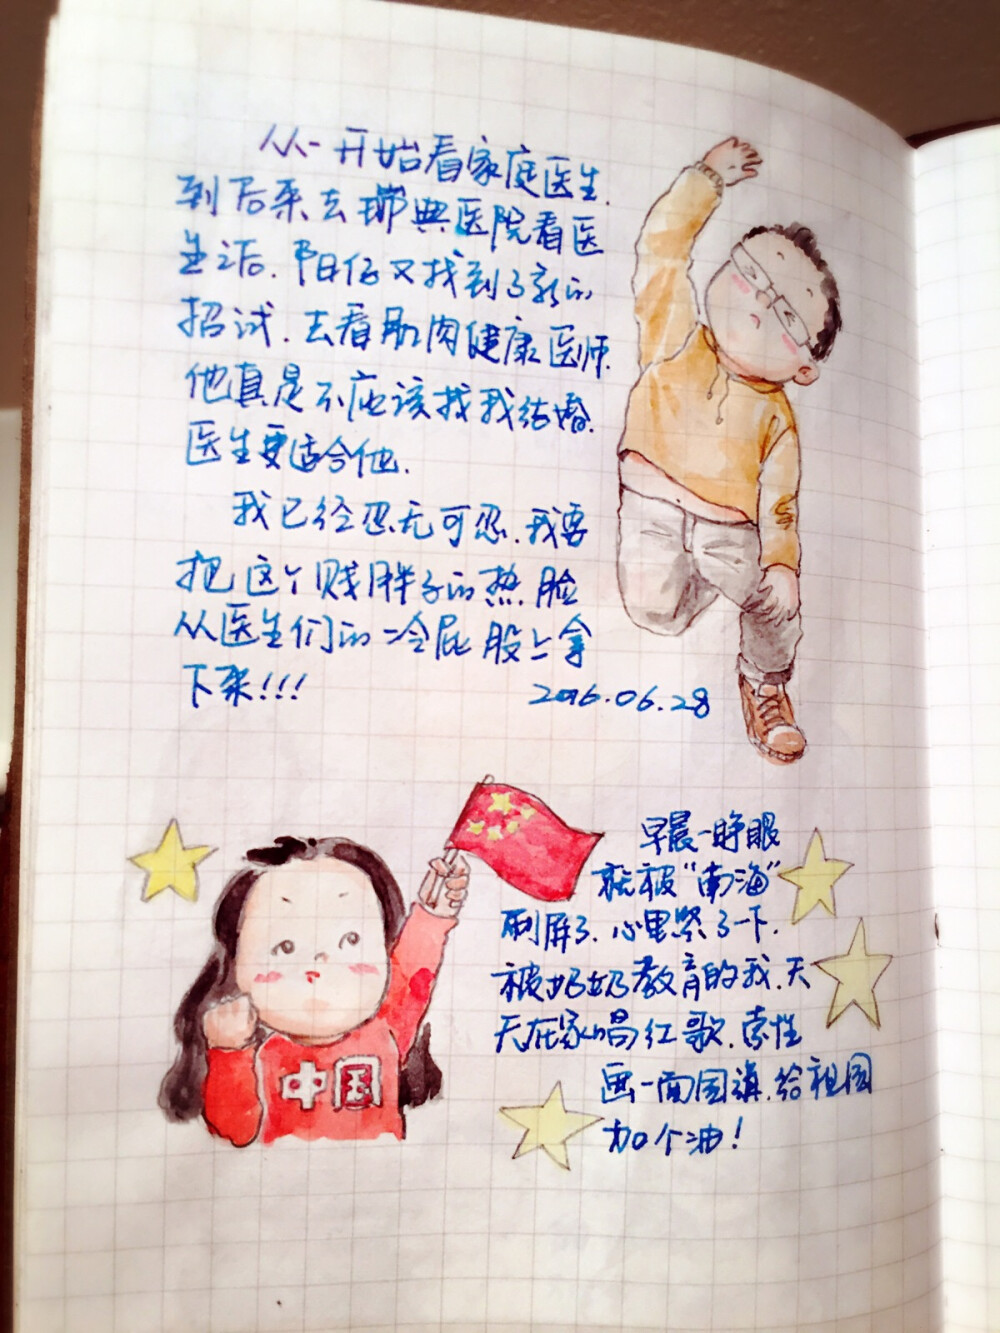 从一开始看家庭医生.
到后来去瑞典医院看医
生后.阳仔又找到了新的
招试.去看肌肉健康医师.
他真是不应该找我结婚.
医生更适合他.
我已经忍无可忍.我要
把这个贱胖子的热脸
从医生们的冷屁股上拿
下来!!!
2016.06.28
早晨一睁眼
就被“南海”
刷屏了.心里紧了一下.
被奶奶教育的我.天
天在家唱红歌.索性
画一面国旗.给祖国
加个油!
中国